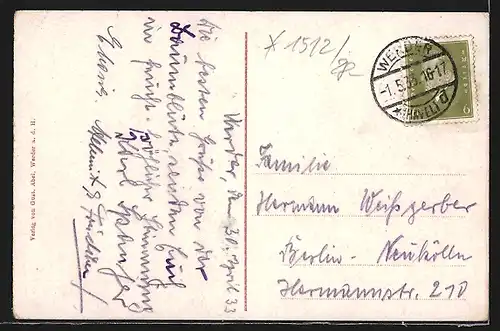 Verlag von Gust. Abel, Werder a. d. H.
Werder, den 30. April 33
Die besten Grüße von der
Baumblüte, senden Euch
in feucht-fröhlicher Stimmung
* 1512/
WERDER
-1.5.33 16-17
* (HAVEL) b
6
Familie
Hermann Weißgerber
Berlin-Neukölln
Hermannstr. 210